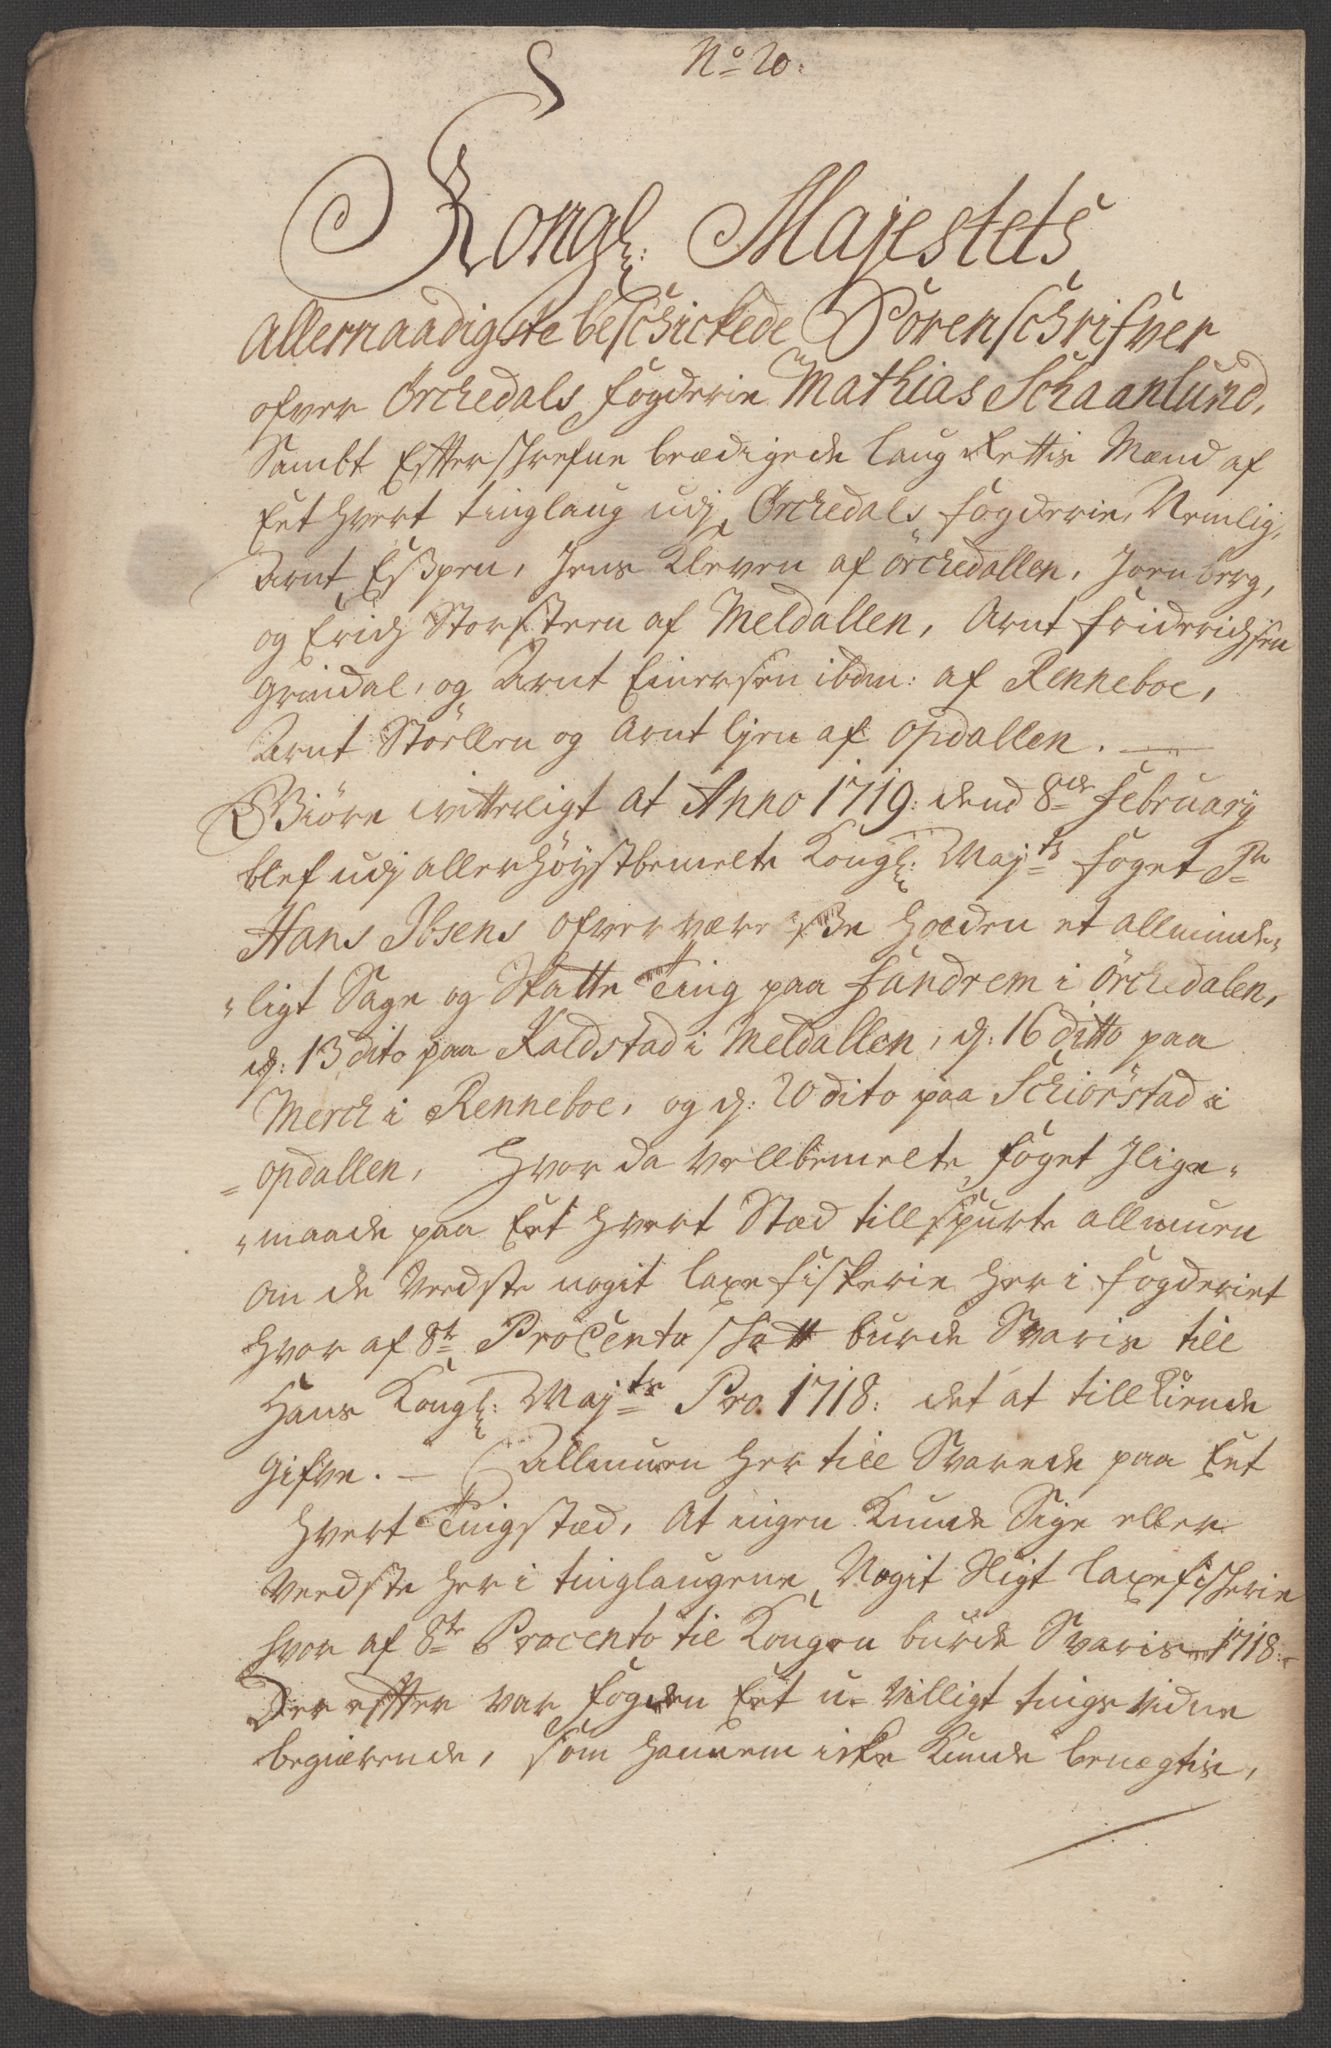 No 20:
Kongl: Majestets
allernaadigste beschickede Sorenschrifver
ofver Örckedals fogderie Mathias Schaanlund,
Sambt Effterschrefne beædigede Laug Rettis Mænd af
Eet hvert tinglaug udj Örckedals fogderie, Nemlig,
Arnt Eßpen, Jens Kleven af örckedallen, Joen berg,
og Erich Storsteen af Meldallen, Arnt friderichsen
Grindal, og Arnt Einersen ibdm: af Renneboe,
Arnt Stöellen og Arnt ljen af opdallen.
Giöre vitterligt at Anno 1719: dend 8de february
blef udj allerhöystbemelte Kongl: Majts foget Sr
Hans Ibsens ofverværelße holden et allminde-
-ligt Sage og Skatte Ting paa fandrem i örckedalen,
d: 13 dito paa Kaldstad i Meldallen, d: 16 ditto paa
Merck i Renneboe, og d: 20 dito paa Schiörstad i
opdallen, hvor da vellbemelte foget Jlige-
-maade paa Eet hvert Stæd tillspurte allmuen
om de Veedste nogit laxefiskerie her i fogderiet
hvor af 8te ProCento skatt burde Svaris till
Hans Kongl: Majts Pro 1718: det at tillkiende
gifve. – Allmuen her till Svarede paa Eet
hvert Tingstæd, At ingen Kunde Sige eller
Veedste her i tinglaugene Nogit Sligt laxefischerie
hvor af 8te Procento til Kongen burde Svaris 1718:
Der effter var fogden Eet u-villigt tings vidne
begiærende, som hannem icke Kunde benægtis,